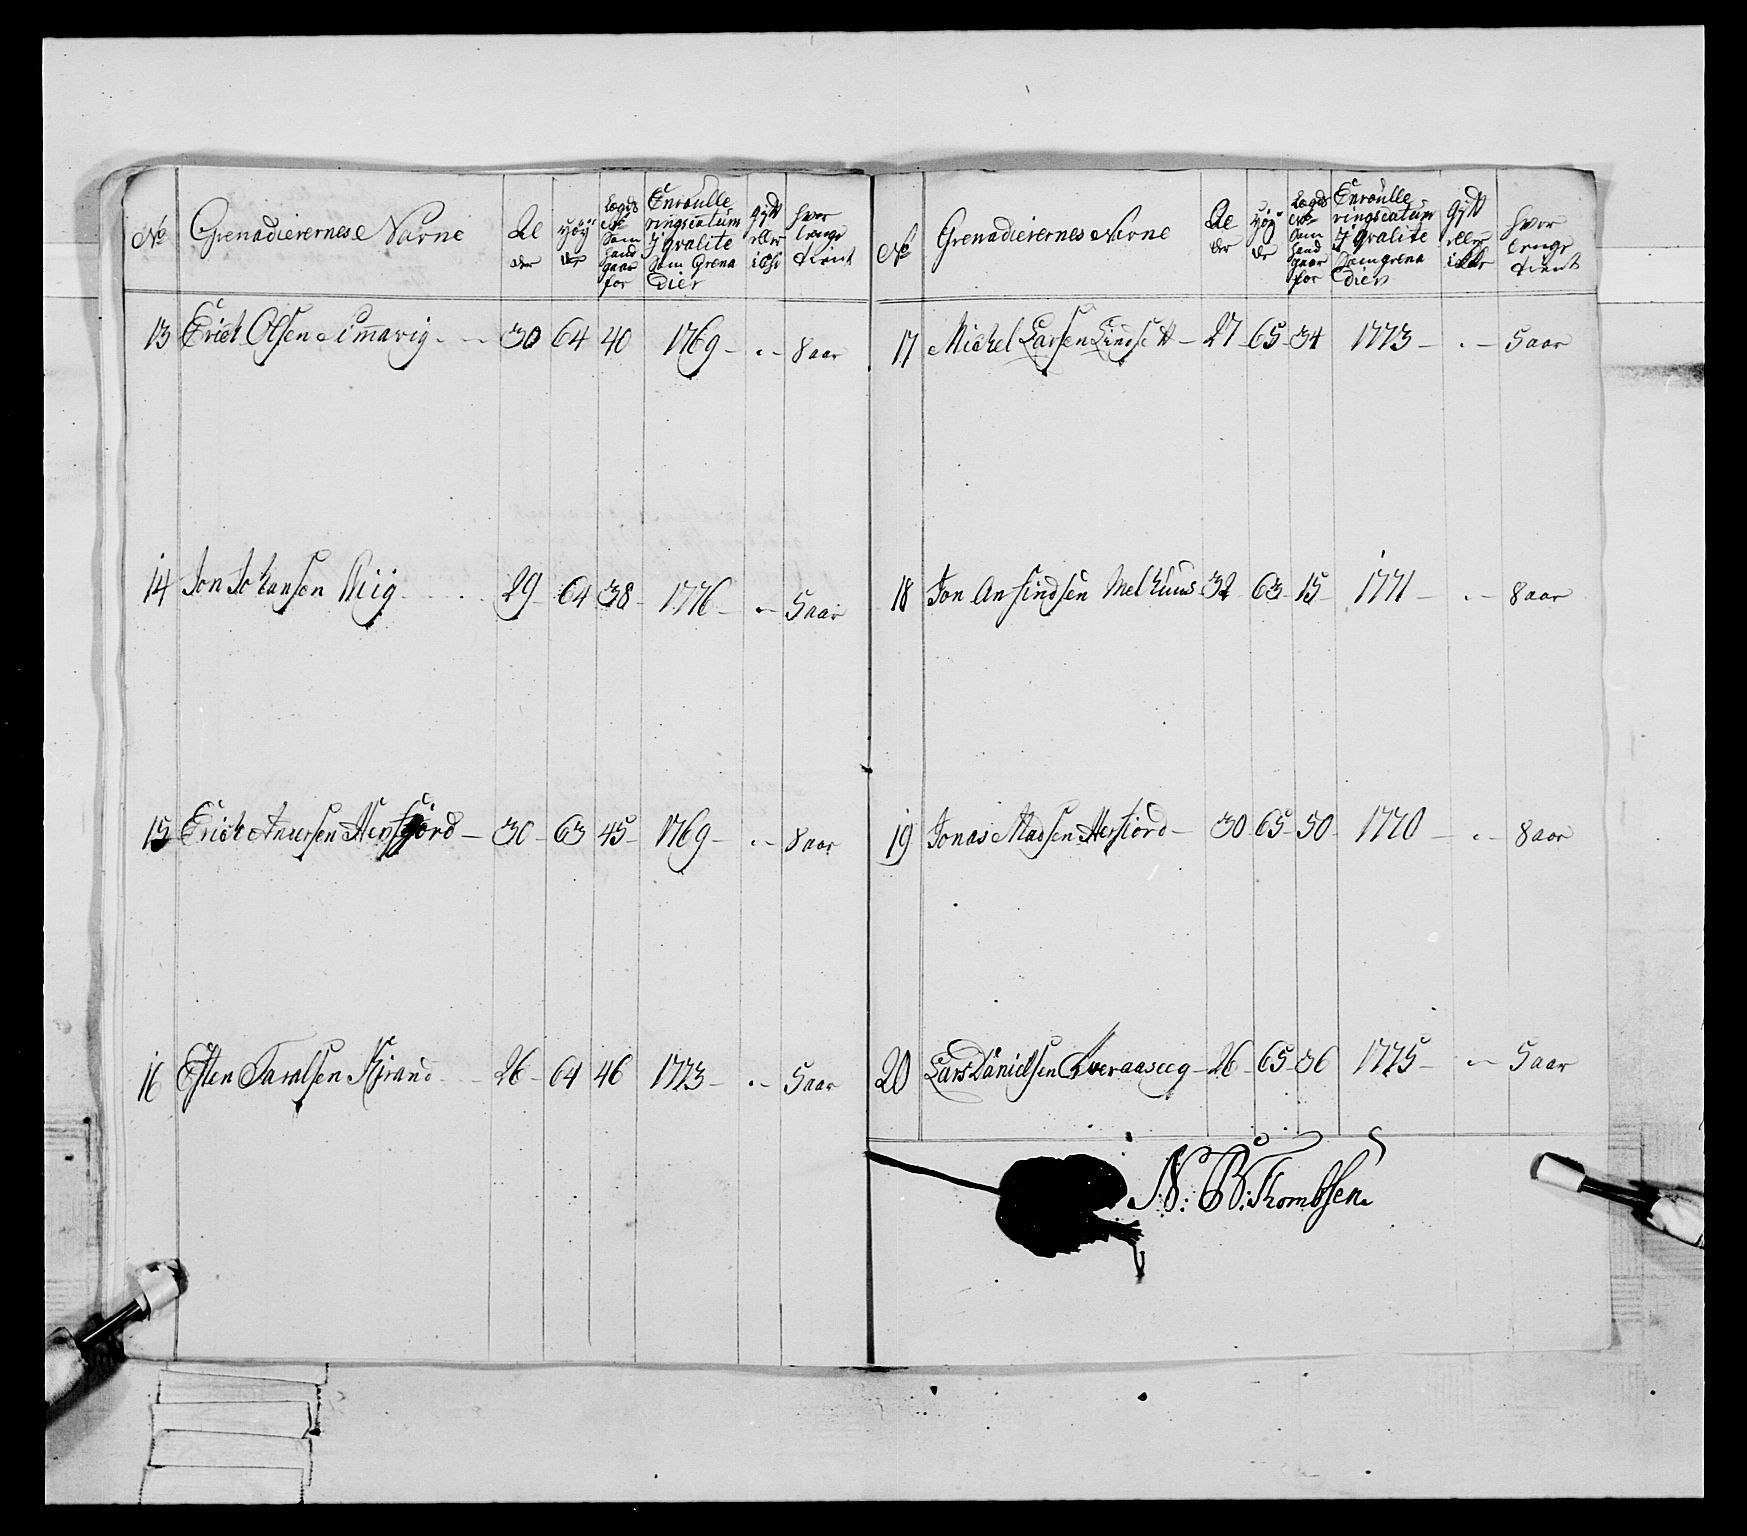 No Grenadierernes Navne Al der Høy de Lægds No Som hand gaar for Enroulle ringsdatum J qvalite Som Grena dier gift eller ikke hvor lenge tient
13 Erich Olsen Simavig - - 30 64 40 1769 - " - 8 aar
14 Jon Johansen Riig - - - - 29 - 64 38 - 1776 - " - 5 aar
15 Erich Andersen Hersfjord - 30 - 63 45 - 1769 - " - 8 aar
16 Esten Taralsen Kirand - - 26 - 64 46 1773 - " - 5 aar
No Grenadierernes Navne Al der Høy de Lægds No Som hand gaar for Enroulle ringsdatum J qvalite Som grena dier gift eller ikke hvor lenge tient
17 Michel Larsen Lindsett - 27 - 65 - 34 1773 - " - 5 aar
18 Jon Anfindsen Melhuus 32 63 - 15 - 1771 - " - 8 aar
19 Jonas Madsen Hersiord - 30 - 65 - 50 - 1770 - " - 8 aar
20 Lars Danielsen - 26 - 65 - 36 1775 - " - 5 aar
N: B: Thombsen